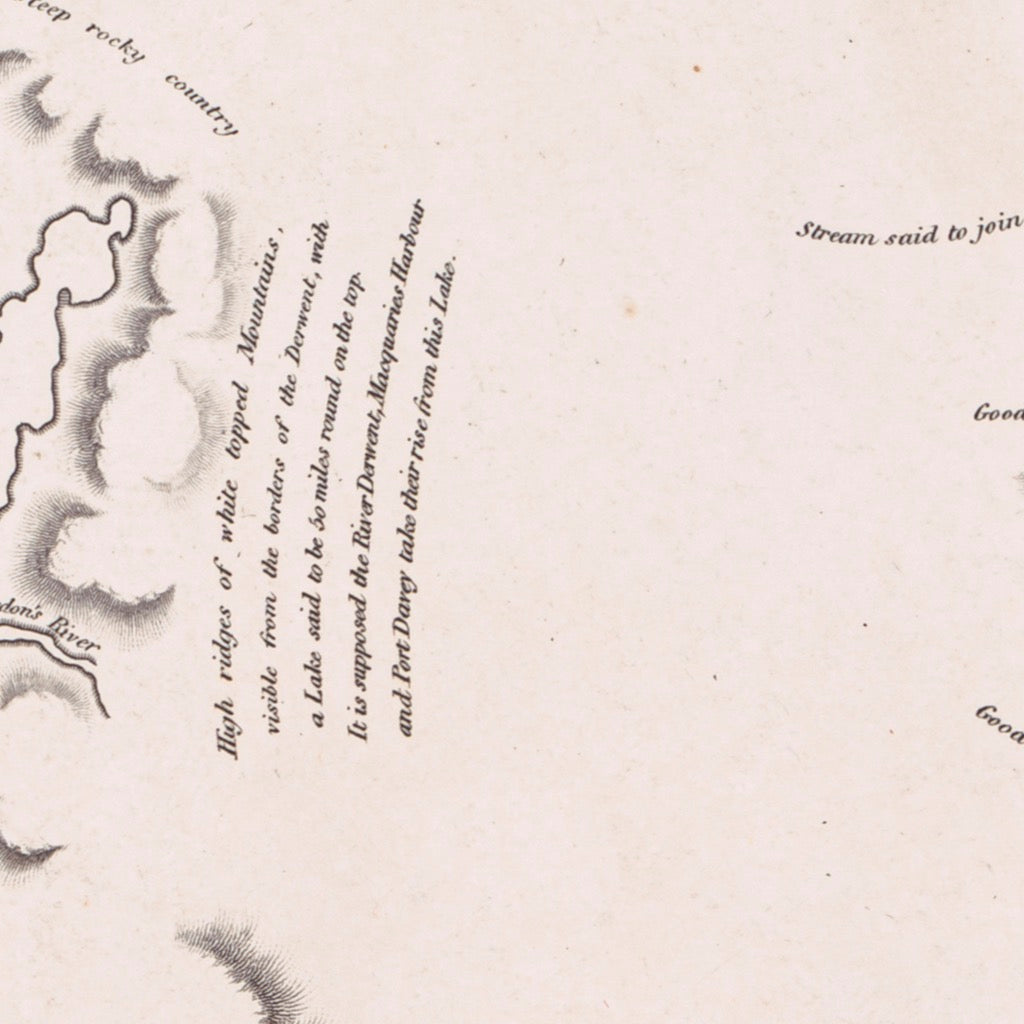 steep rocky country
High ridges of white topped Mountains,
visible from the borders of the Derwent, with
a Lake said to be 50 miles round on the top.
It is supposed the River Derwent, Macquaries Harbour
and Port Davey take their rise from this Lake.
don's River
Stream said to join
Good
Good